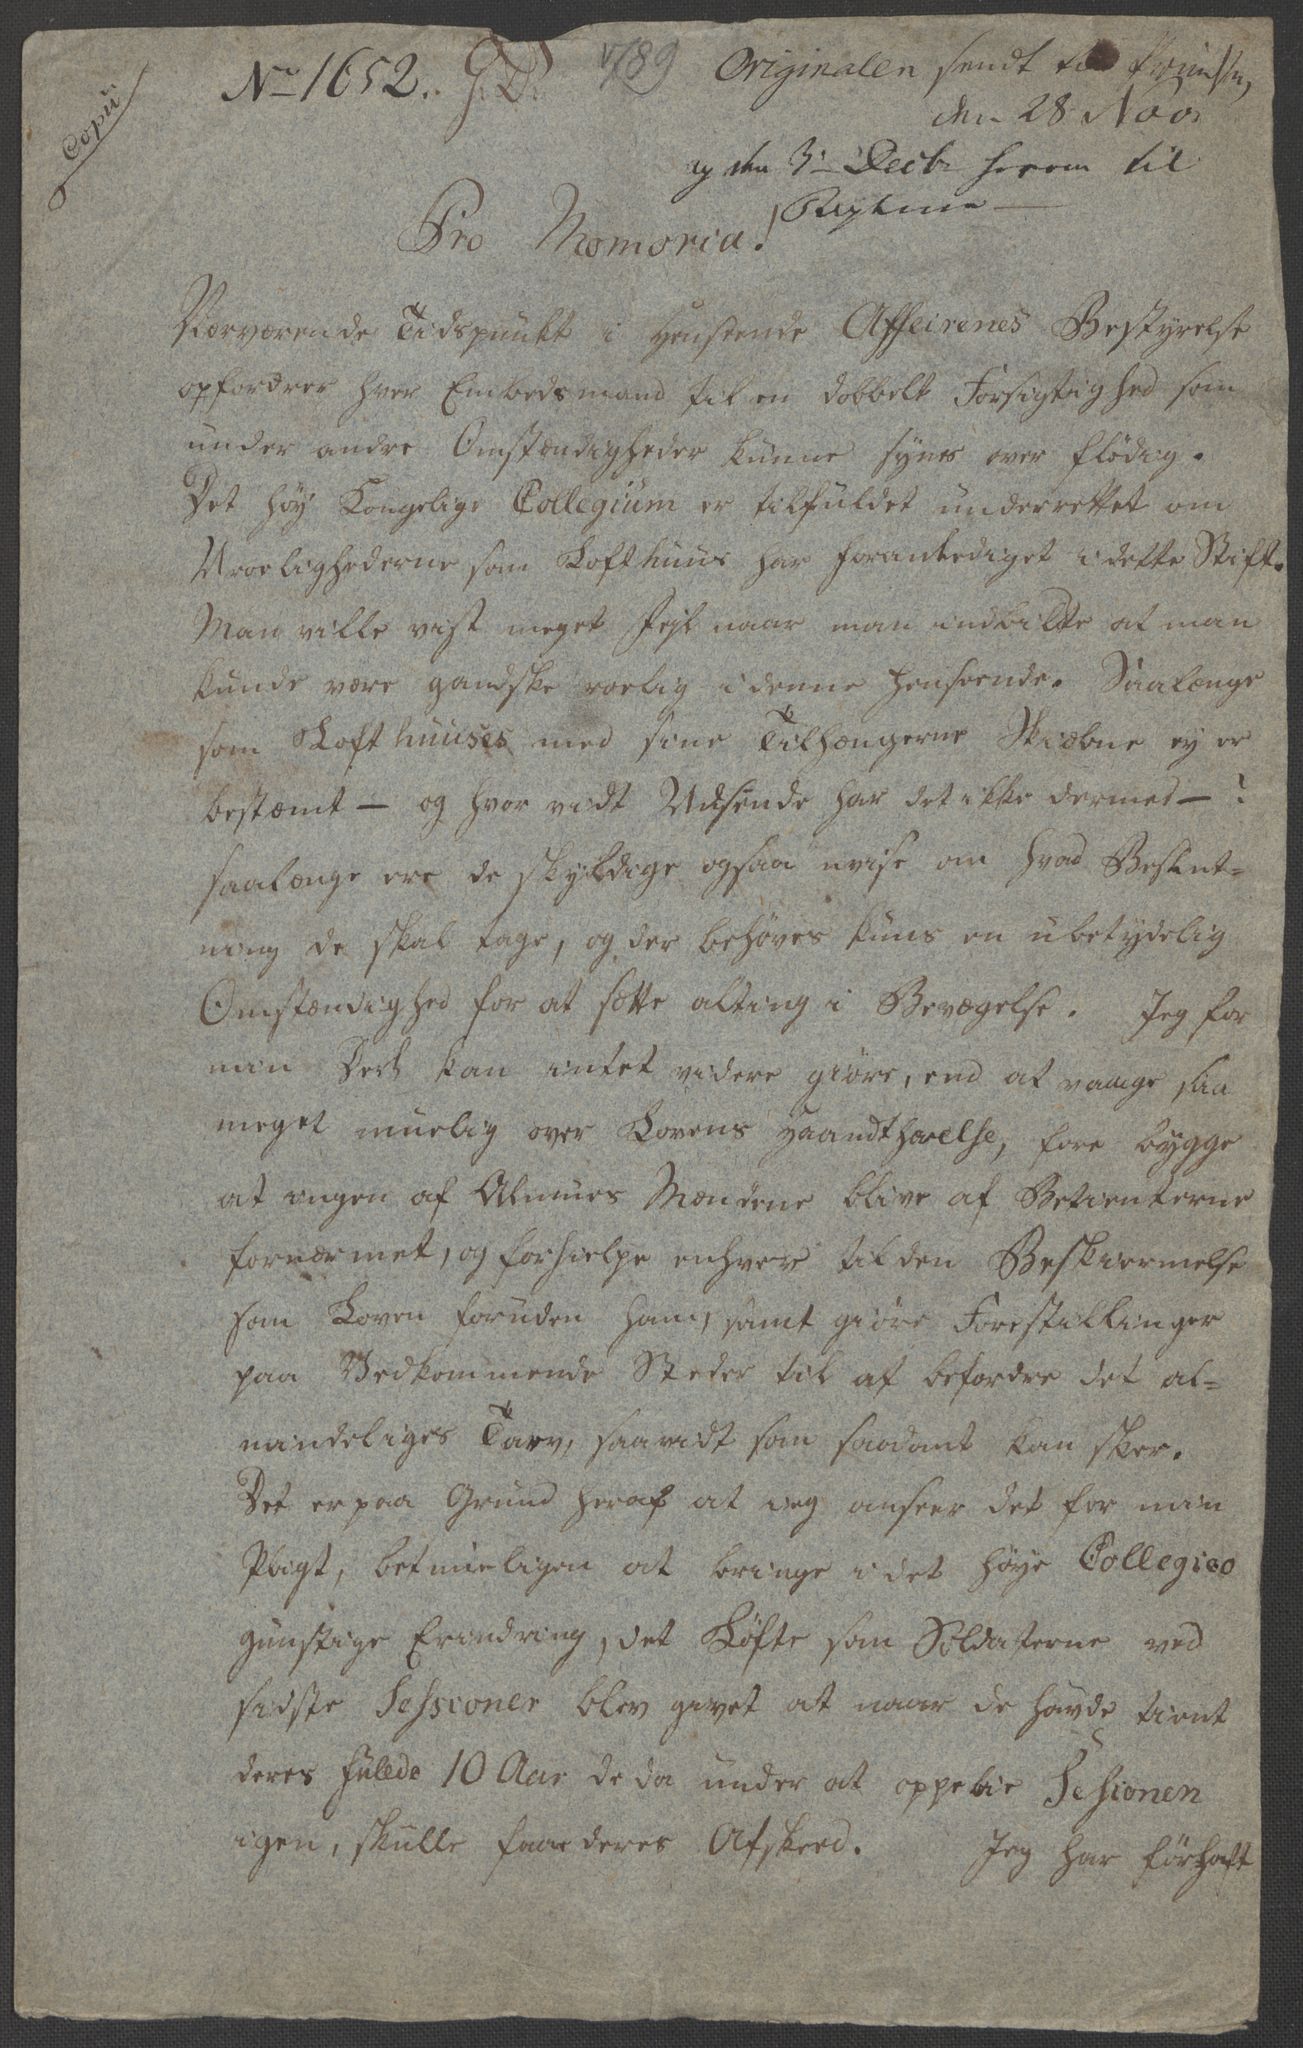 Copii
No 1652. G. D. 1789 Originalen sendt til Printzen,
den 28 Nov
og den 3 Decbr herom til
Pro Memoria!
Nærværende Tidspunkt i Henseende Affeirenes Bestyrelse
opfordrer hver Embedsmand til en dobbelt Forsigtighed som
under andre Omstændigheder kunne synes over flödig.
Det höy Kongelige Collegium er tilfuldet underrettet om
Uroelighederne som Lofthuus har foranlediget i dette Stift.
Man ville vist meget fejl naar man indbildte at man
kunde være gandske roelig i denne Henseende. Saalænge
som Lofthuuses med sine Tilhængerne Skiæbne ey er
bestæmt — og hvor vidt Udseende har det ikke dermed — !
saalænge ere de skyldige ogsaa uvise om hvad Beslut-
ning de skal tage, og der behöves kuns en ubetydelig
Omstændighed for at sætte alting i Bevægelse. Jeg for
min Deel kan intet videre giöre, end at vaage saa
meget muelig over Lovens Haandthævelse, fore bygge
at ingen af Almues Mændene blive af Betienterne
fornærmet, og forhielpe enhver til den Beskiermelse
som Loven forunden ham, samt giöre Forestillinger
paa Vedkommende Steder til at befordre det al-
mindeliges Tarv, saavidt som saadant kan skee.
Det er paa Grund heraf at ieg anseer det for min
Pligt, betimeligen at bringe i det höye Collegiio
gunstige Erindring, det Löfte som Soldaterne ved
sidste Sessioner blev givet at naar de havde tient
deres fulde 10 Aar de da under at oppebie Sessionen
igen, skulle faae deres Afskeed. Jeg har förhaft